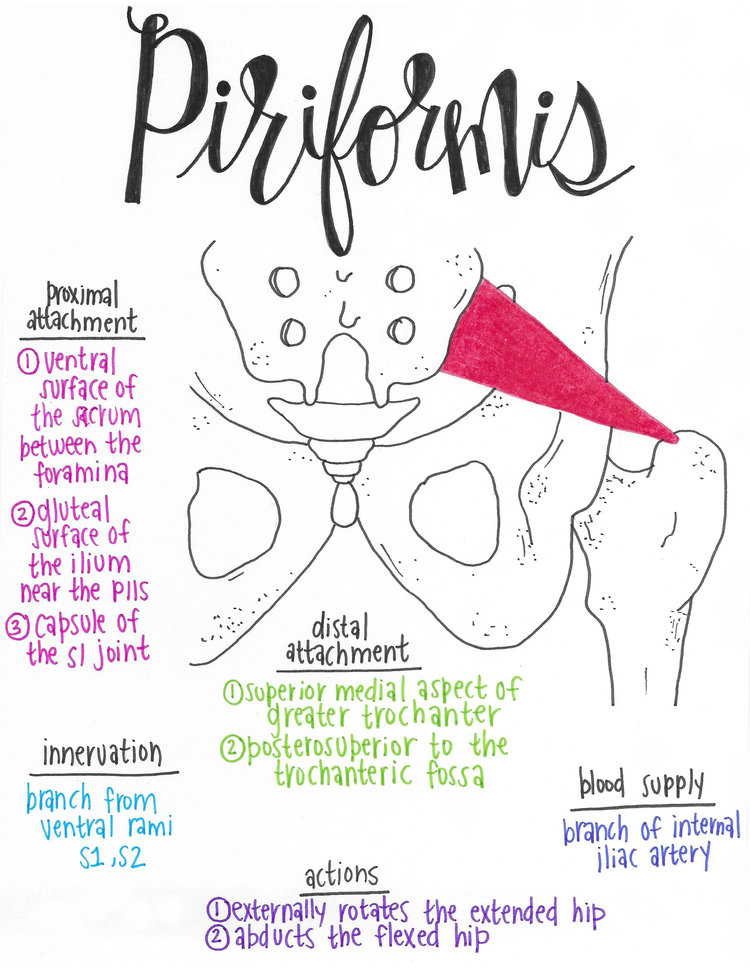 Piriformis
proximal
attachment
① ventral
surface of
the sacrum
between the
foramina
② gluteal
surface of
the ilium
near the PIIS
③ capsule of
the SI joint
distal
attachment
① superior medial aspect of
greater trochanter
② posterosuperior to the
trochanteric fossa
innervation
branch from
ventral rami
S1, S2
blood supply
branch of internal
iliac artery
actions
① externally rotates the extended hip
② abducts the flexed hip